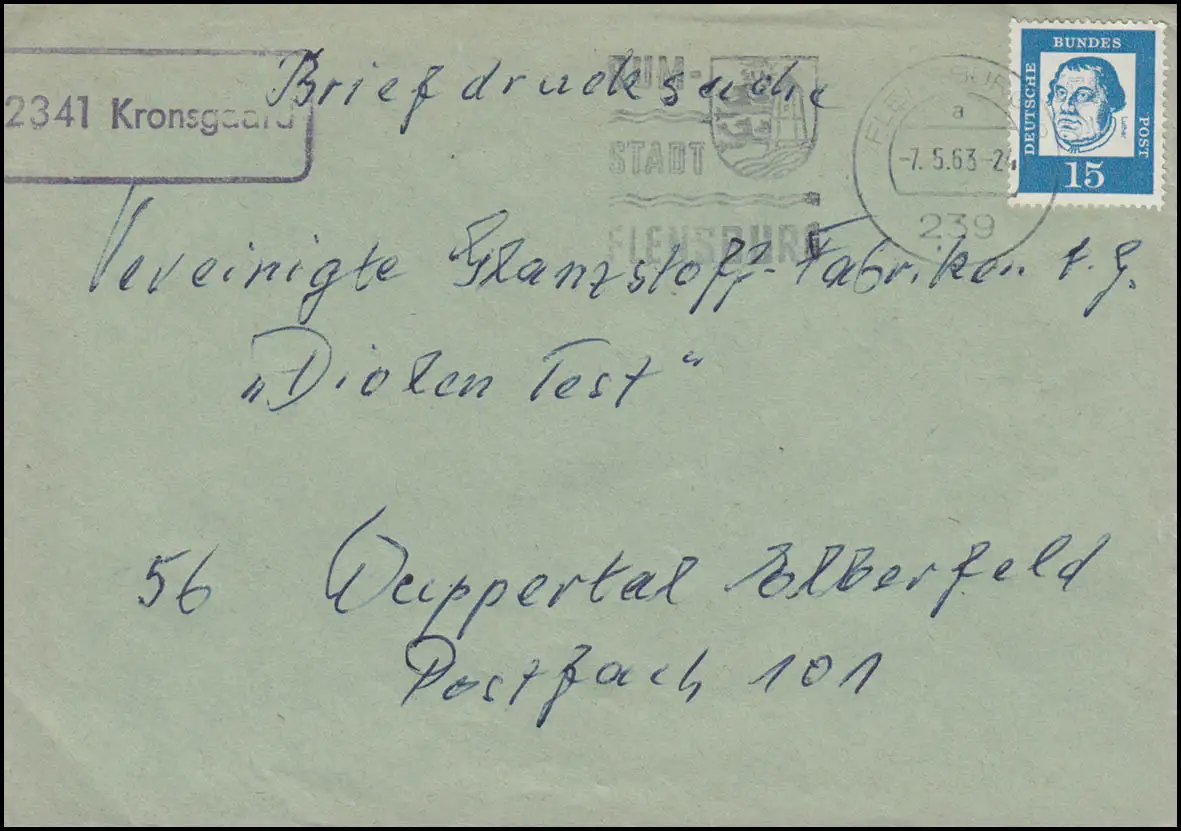 2341 Kronsgaard
Briefdrucksache
RUM-
STADT
FLENSBURG
FLENSBURG
a
-7.5.63-24
239
DEUTSCHE
BUNDES
POST
Luther
15
Vereinigte Glanzstoff-Fabriken A.G.
„Diolen Test“
56 Wuppertal Elberfeld
Postfach 101